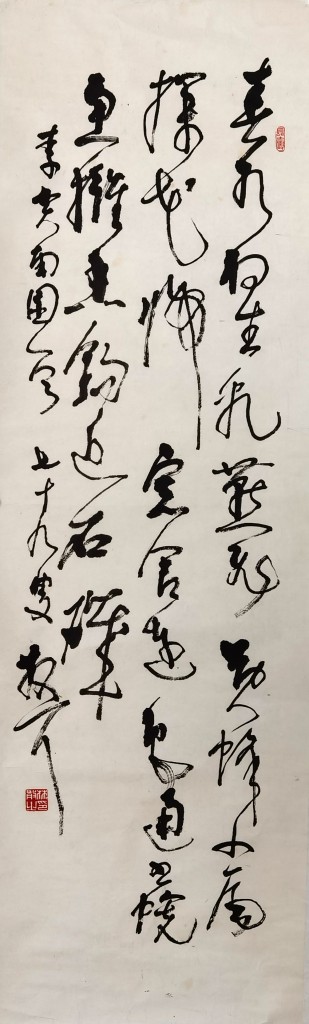 春水初生乳燕飛黃蜂小尾
撲花歸窗含遠色通書幌
魚擁香鉤近石磯
李賀南園一首七十九叟散耳